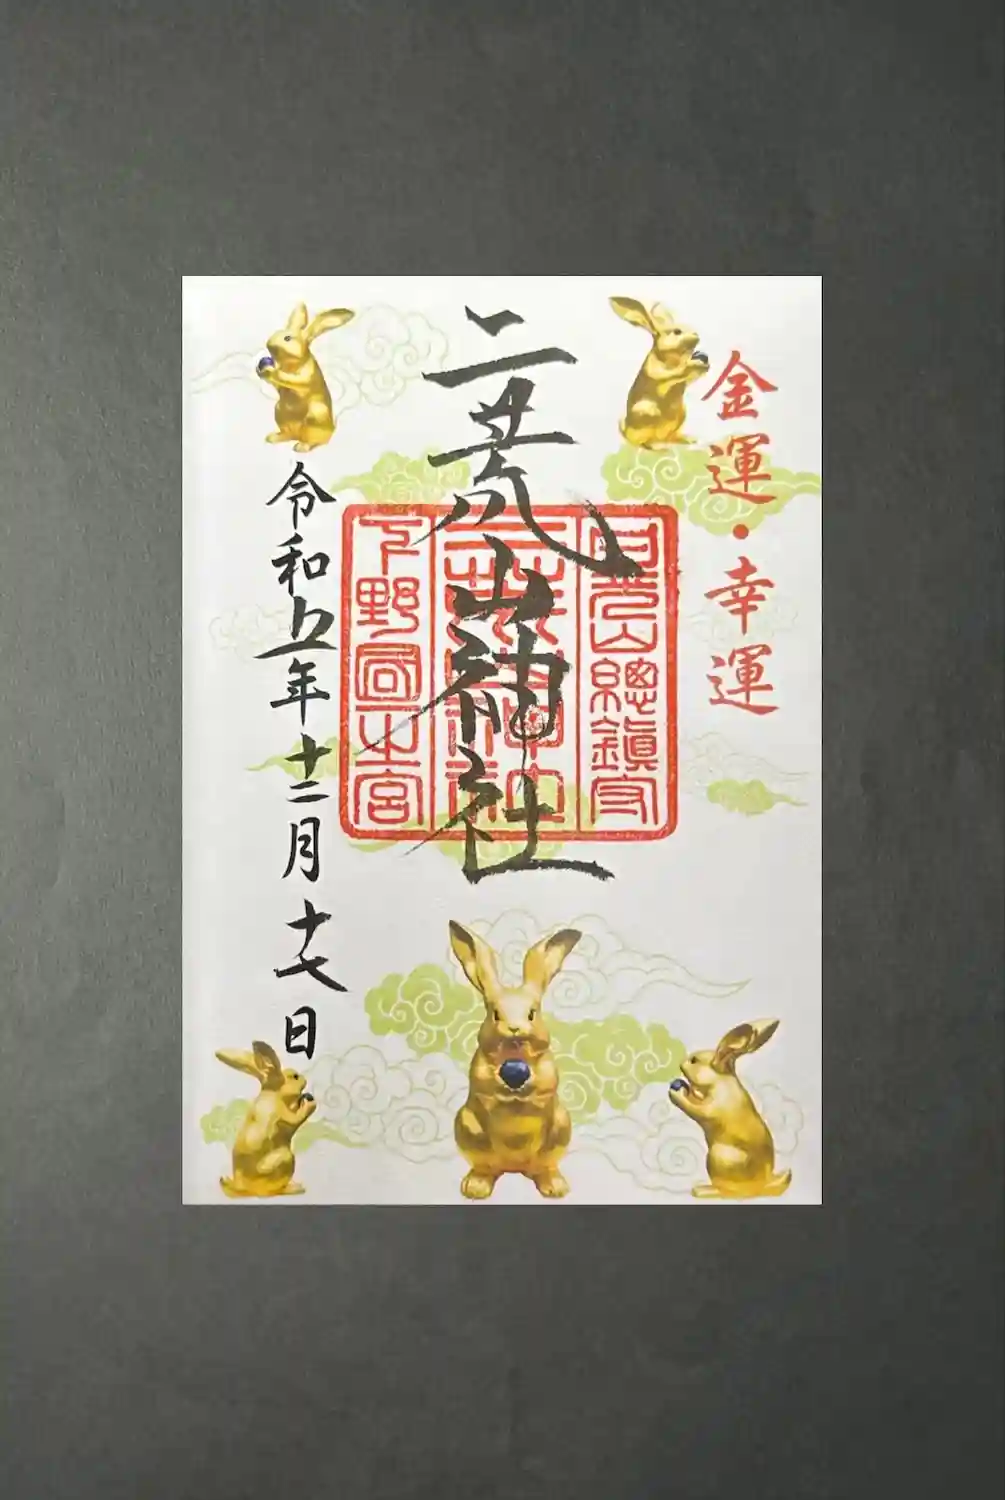 金運・幸運
二荒山神社
日光山總鎮守
二荒山神社
下野國一之宮
令和五年十二月十七日